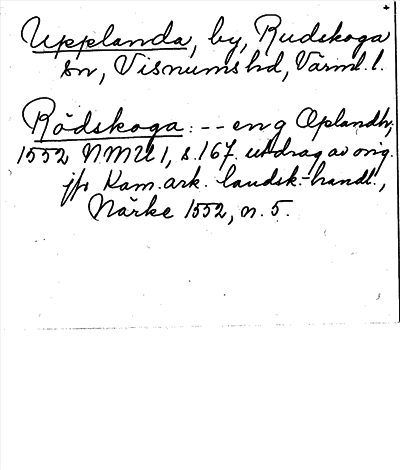 Upplanda, by, Rudskoga
sn, Visnums hd, Värml. l.
Rödskoga: -- eng Oplandh;
1552 NMU 1, s. 167. utdrag av orig.
jfr Kam. ark. landsk.-handl.,
Närke 1552, n. 5.